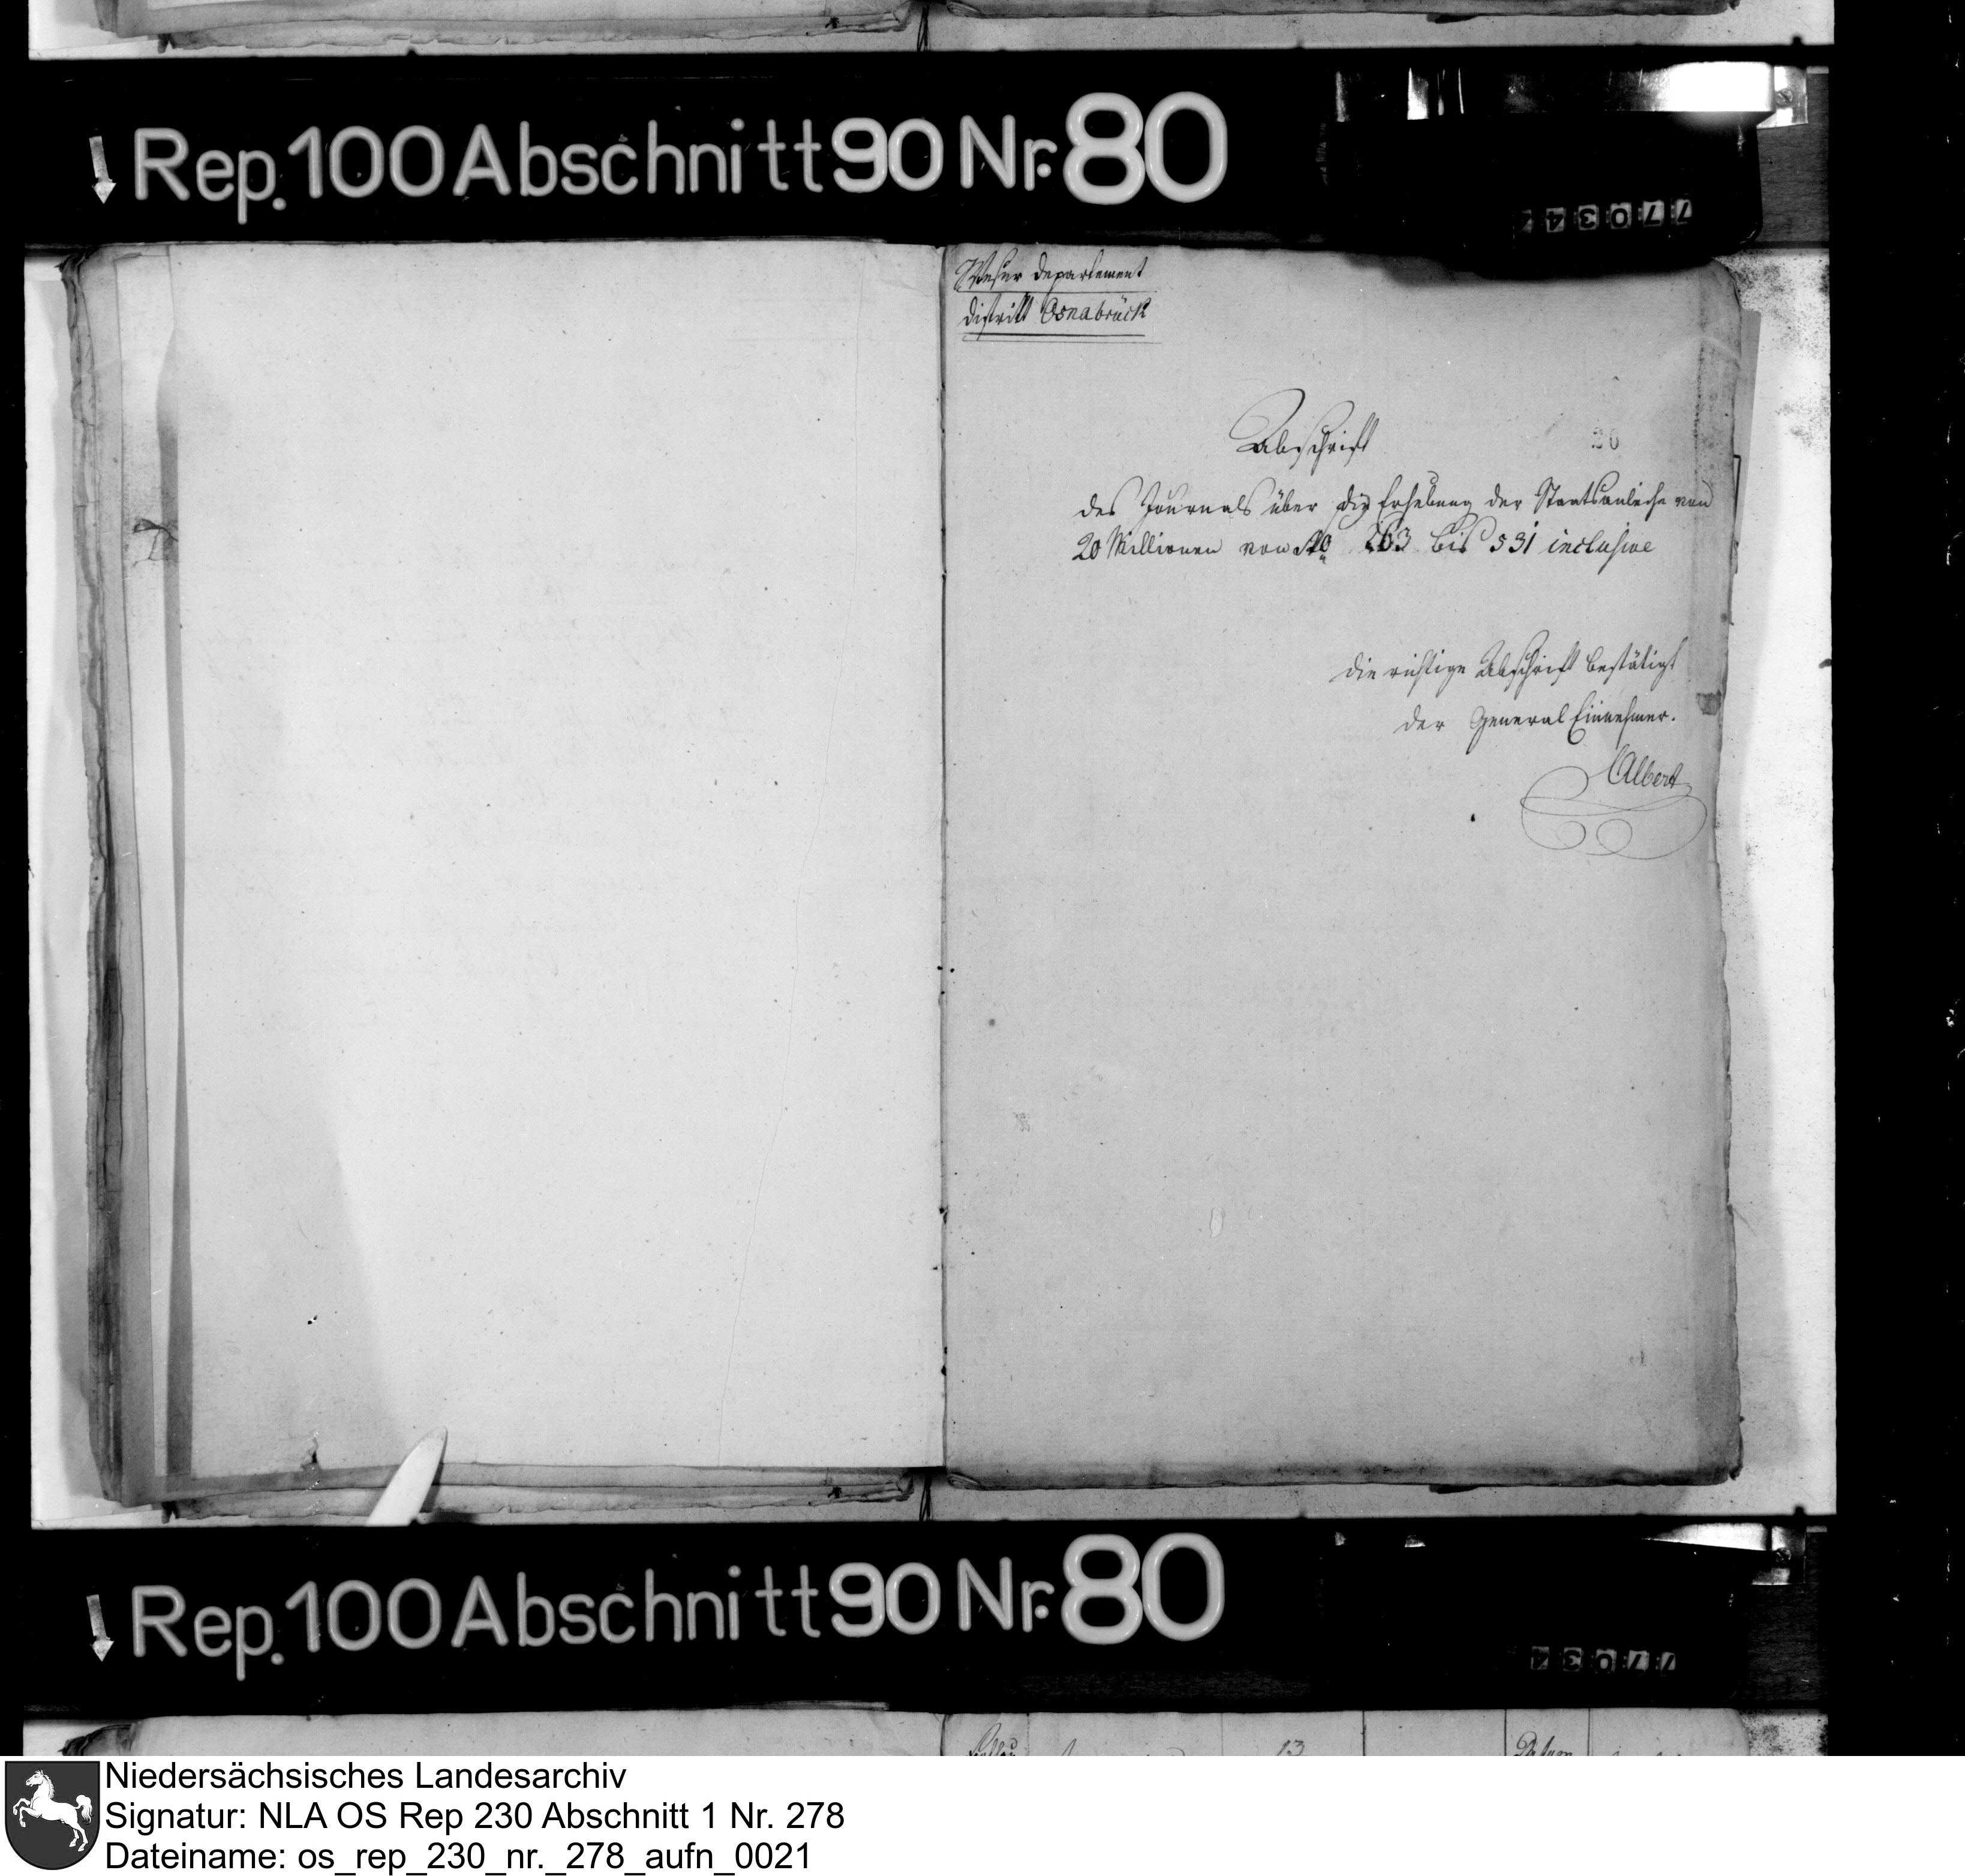 ↓ Rep. 100 Abschnitt 90 Nr. 80
77034
Weser Departement
District Osnabrück
Abschrift
20
des Journals über die Erhebung der Staatsanleihe von
20 Millionen von No 263 bis 531 inclusive
die richtige Abschrift bestätigt
der General Einnehmer.
Albert
↓ Rep. 100 Abschnitt 90 Nr. 80
77034
13
Datum
Niedersächsisches Landesarchiv
Signatur: NLA OS Rep 230 Abschnitt 1 Nr. 278
Dateiname: os_rep_230_nr._278_aufn_0021